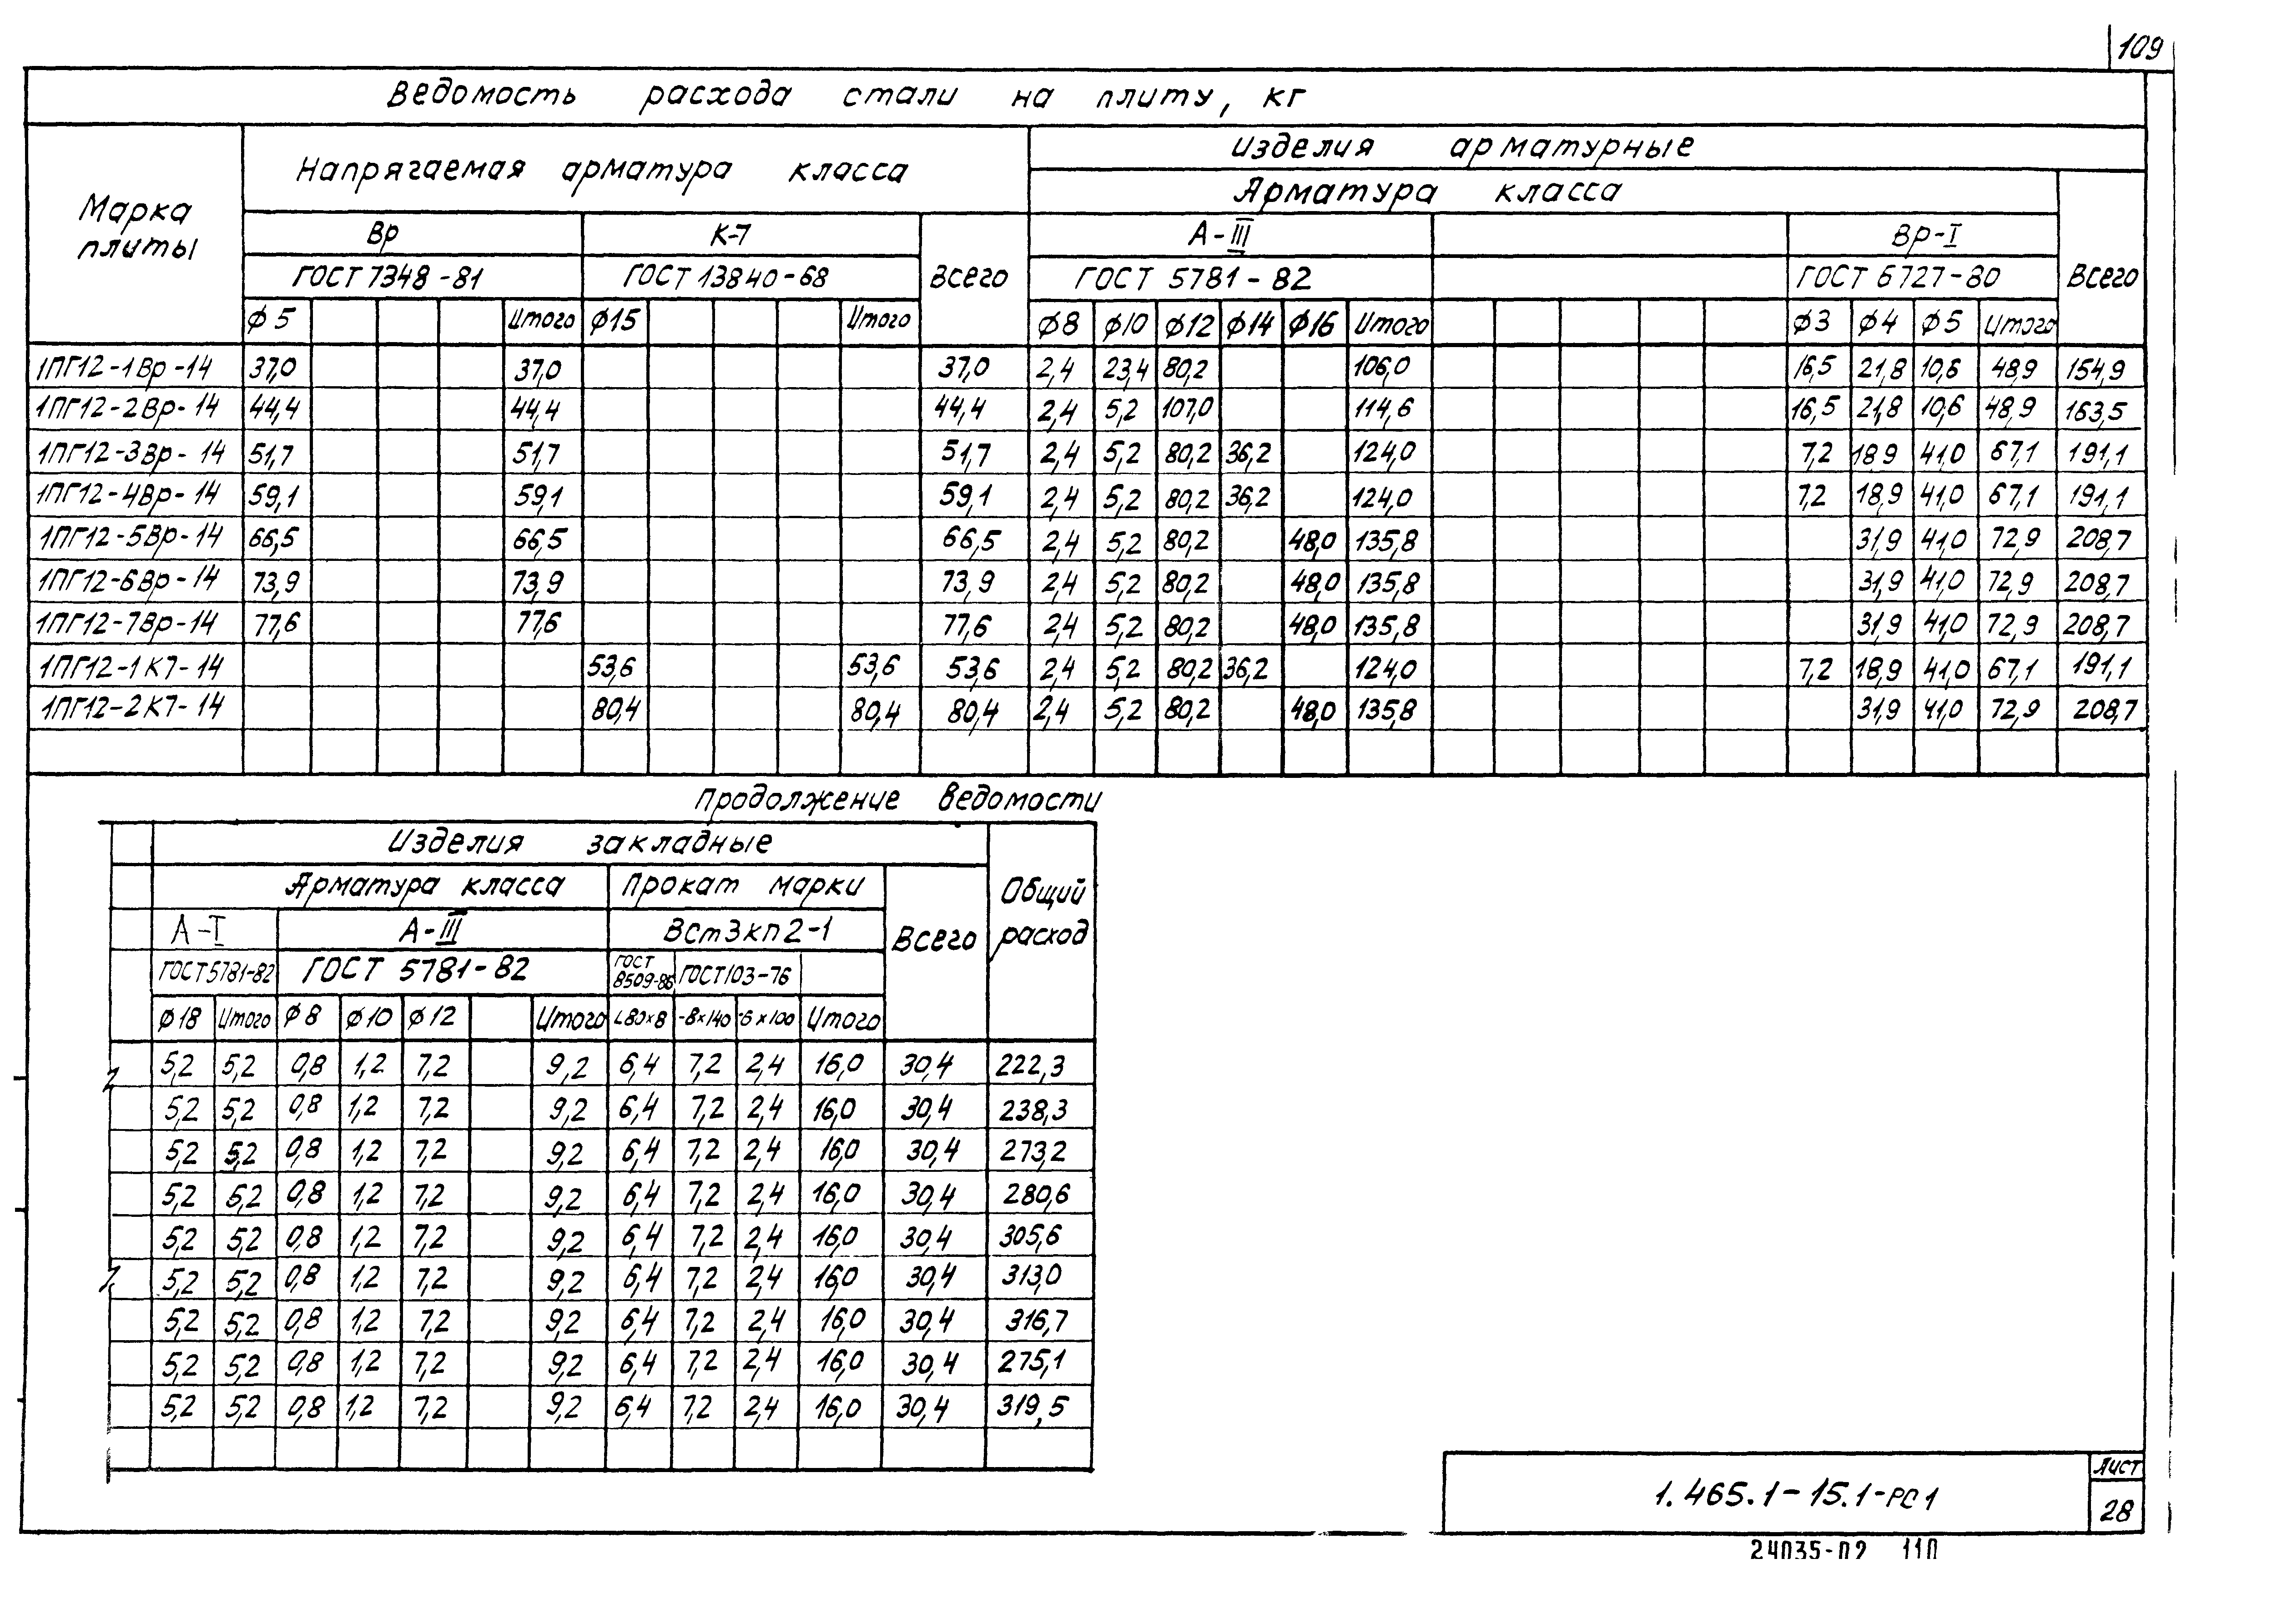 109
Ведомость расхода стали на плиту, кг
Марка плиты
Напрягаемая арматура класса
Изделия арматурные
Арматура класса
Вр К-7 Всего А-III Вр-I Всего
ГОСТ 7348-81 ГОСТ 13840-68 ГОСТ 5781-82 ГОСТ 6727-80
ϕ5 Итого ϕ15 Итого ϕ8 ϕ10 ϕ12 ϕ14 ϕ16 Итого ϕ3 ϕ4 ϕ5 Итого
1ПГ12-1Вр-14 37,0 37,0 37,0 2,4 23,4 80,2 106,0 16,5 21,8 10,6 48,9 154,9
1ПГ12-2Вр-14 44,4 44,4 44,4 2,4 5,2 107,0 114,6 16,5 21,8 10,6 48,9 163,5
1ПГ12-3Вр-14 51,7 51,7 51,7 2,4 5,2 80,2 36,2 124,0 7,2 18,9 41,0 67,1 191,1
1ПГ12-4Вр-14 59,1 59,1 59,1 2,4 5,2 80,2 36,2 124,0 7,2 18,9 41,0 67,1 191,1
1ПГ12-5Вр-14 66,5 66,5 66,5 2,4 5,2 80,2 48,0 135,8 31,9 41,0 72,9 208,7
1ПГ12-6Вр-14 73,9 73,9 73,9 2,4 5,2 80,2 48,0 135,8 31,9 41,0 72,9 208,7
1ПГ12-7Вр-14 77,6 77,6 77,6 2,4 5,2 80,2 48,0 135,8 31,9 41,0 72,9 208,7
1ПГ12-1К7-14 53,6 53,6 53,6 2,4 5,2 80,2 36,2 124,0 7,2 18,9 41,0 67,1 191,1
1ПГ12-2К7-14 80,4 80,4 80,4 2,4 5,2 80,2 48,0 135,8 31,9 41,0 72,9 208,7
Продолжение ведомости
Изделия закладные
Арматура класса Прокат марки Всего Общий расход
А-I А-III ВСт3кп2-1
ГОСТ 5781-82 ГОСТ 5781-82 ГОСТ 8509-86 ГОСТ 103-76
ϕ18 Итого ϕ8 ϕ10 ϕ12 Итого L80×8 -8×140 -6×100 Итого
5,2 5,2 0,8 1,2 7,2 9,2 6,4 7,2 2,4 16,0 30,4 222,3
5,2 5,2 0,8 1,2 7,2 9,2 6,4 7,2 2,4 16,0 30,4 238,3
5,2 5,2 0,8 1,2 7,2 9,2 6,4 7,2 2,4 16,0 30,4 273,2
5,2 5,2 0,8 1,2 7,2 9,2 6,4 7,2 2,4 16,0 30,4 280,6
5,2 5,2 0,8 1,2 7,2 9,2 6,4 7,2 2,4 16,0 30,4 305,6
5,2 5,2 0,8 1,2 7,2 9,2 6,4 7,2 2,4 16,0 30,4 313,0
5,2 5,2 0,8 1,2 7,2 9,2 6,4 7,2 2,4 16,0 30,4 316,7
5,2 5,2 0,8 1,2 7,2 9,2 6,4 7,2 2,4 16,0 30,4 275,1
5,2 5,2 0,8 1,2 7,2 9,2 6,4 7,2 2,4 16,0 30,4 319,5
1.465.1-15.1-РС1
Лист
28
24035-02 110